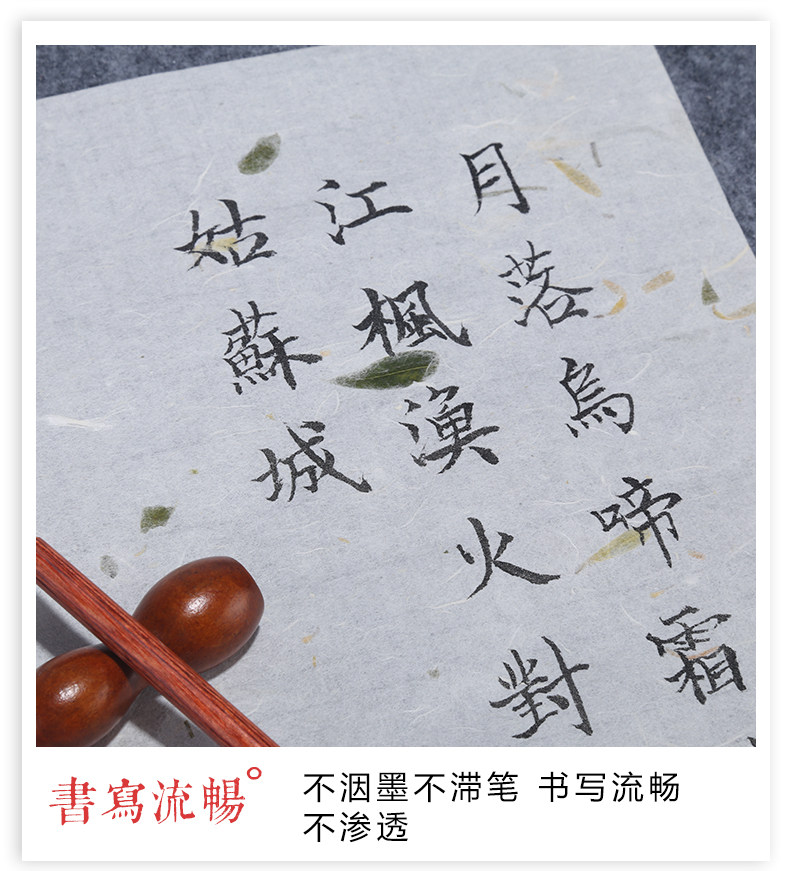 月落烏啼霜
江楓漁火對
姑蘇城
書寫流暢
不洇墨不滞笔 书写流畅
不渗透